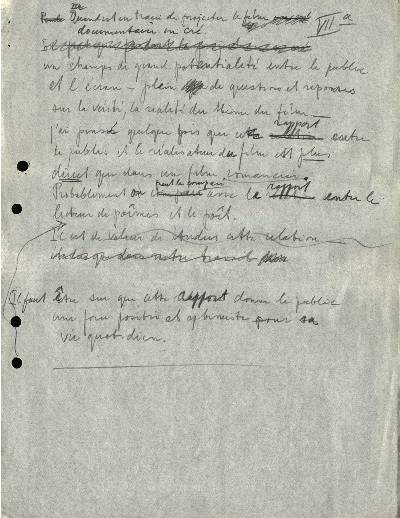 VII a
Quand est en train de projecter le film
documentaire on crée
un champs de grand potentialité entre le public
et l'écran — plein de questions et reponses
sur la verité, la realité du thème du film —
j'ai pensé quelque fois que rapport entre
le public et le realisateur du film est plus
direct que dans un film romancier.
Probablement on peut le comparer avec le rapport entre le
lecteur de poèmes et le poèt.
Il est de valeur de étudier cette relation
Il faut être sur que cette rapport donne le public
une force positive et optimiste pour sa
vie quotidien.